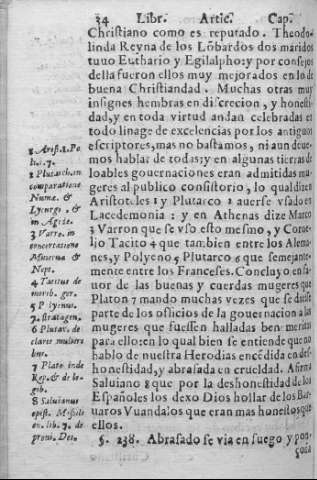 34 Libr. Artic. Cap.
Christiano como es reputado. Theodo-
linda Reyna de los Lõbardos dos maridos
tuuo Euthario y Egilalpho: y por consejos
della fueron ellos muy mejorados en lo de
buena Christiandad. Muchas otras muy
insignes hembras en discrecion, y honesti-
dad, y en toda virtud andan celebradas en
todo linage de excelencias por los antiguos
escriptores, mas no bastamos, ni aun deue-
mos hablar de todas: y en algunas tierras de
loables gouernaciones eran admitidas mu-
geres al publico consistorio, lo qual dizen
Aristoteles 1 y Plutarco 2 auerse vsado en
Lacedemonia : y en Athenas dize Marco
3 Varron que se vso esto mesmo, y Corne-
lio Tacito 4 que tambien entre los Alema-
nes, y Polyeno 5 Plutarco 6 que semejante-
mente entre los Franceses. Concluyo en fa-
uor de las buenas y cuerdas mugeres que
Platon 7 mando muchas vezes que se diesse
parte de los officios de la gouernacion a las
mugeres que fuessen halladas ben meritas
para ello: en lo qual bien se entiende que no
hablo de nuestra Herodias encẽdida en des-
honestidad, y abrasada en crueldad. Afirma
Saluiano 8 que por la deshonestidad de los
Españoles los dexo Dios hollar de los Bar-
uaros Vuandalos que eran mas honestos que
ellos.
§. 238. Abrasado se via en fuego y pon-
çoña
1 Arist. 2. Po
li. 7.
2 Plutarch. in
comparatione
Numæ. &
Lycurg. &
in Agide.
3 Varro. in
concertatione
Mineruæ &
Nept.
4 Tacitus de
morib. ger.
5 Polyenus.
7. stratagem.
6 Plutar. de
claris mulieri
bus.
7 Plato inde
Rep. & de le-
gib.
8 Saluianus
epist. Massilie
en. lib. 7. de
proui. Dei.